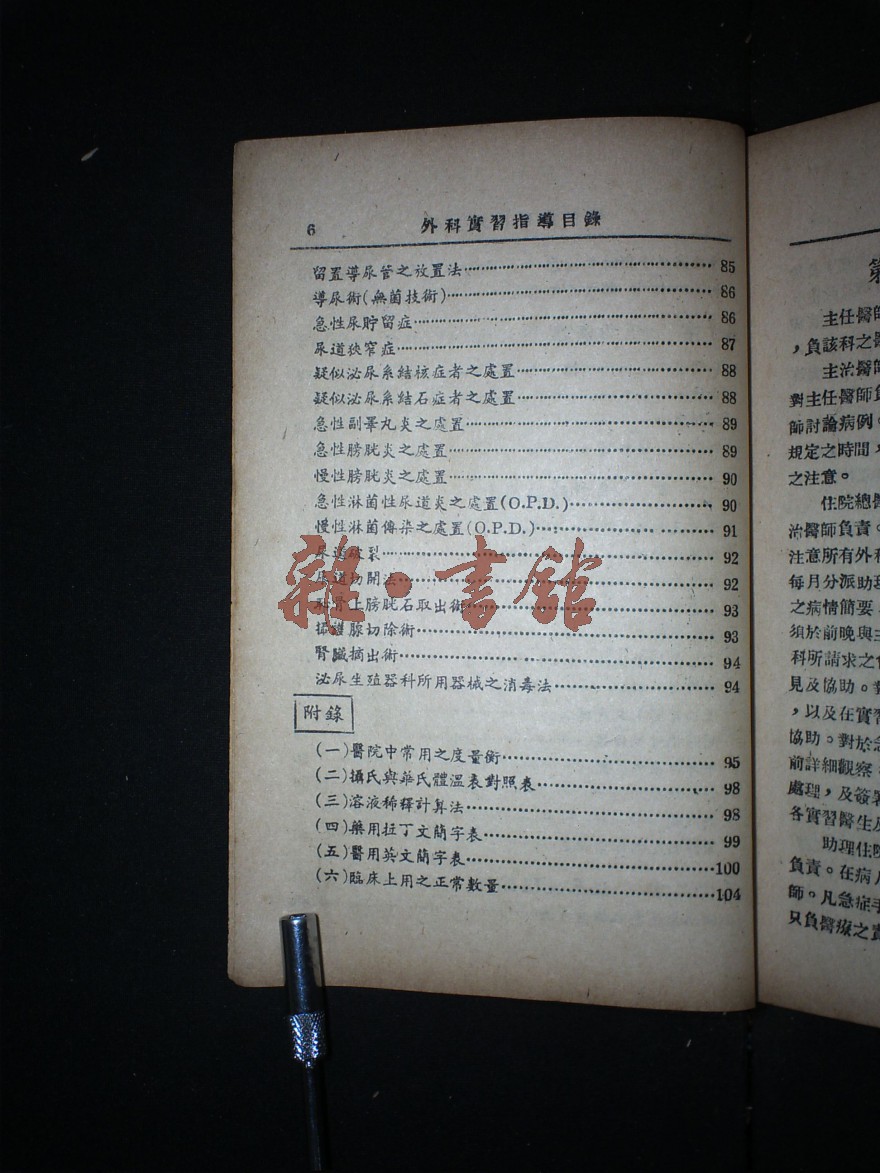 6 外科實習指導目錄
留置導尿管之放置法 85
導尿術(無菌技術) 86
急性尿貯留症 86
尿道狹窄症 87
疑似泌尿系結核症者之處置 88
疑似泌尿系結石症者之處置 88
急性副睾丸炎之處置 89
急性膀胱炎之處置 89
慢性膀胱炎之處置 90
急性淋菌性尿道炎之處置(O.P.D.) 90
慢性淋菌傳染之處置(O.P.D.) 91
尿道破裂 92
尿道切開法 92
恥骨上膀胱石取出術 93
攝護腺切除術 93
腎臟摘出術 94
泌尿生殖器科所用器械之消毒法 94
附錄
(一)醫院中常用之度量衡 95
(二)攝氏與華氏體溫表對照表 98
(三)溶液稀釋計算法 98
(四)藥用拉丁文簡字表 99
(五)醫用英文簡字表 100
(六)臨床上用之正常數量 104
雜·書館
第
主任醫師
，負該科之醫
主治醫師
對主任醫師負
師討論病例。
規定之時間，
之注意。
住院總醫
治醫師負責。
注意所有外科
每月分派助理
之病情簡要，
須於前晚與主
科所請求之會
見及協助。對
，以及在實習
協助。對於急
前詳細觀察，
處理，及簽署
各實習醫生及
助理住院
負責。在病人
師。凡急症手
只負醫療之責